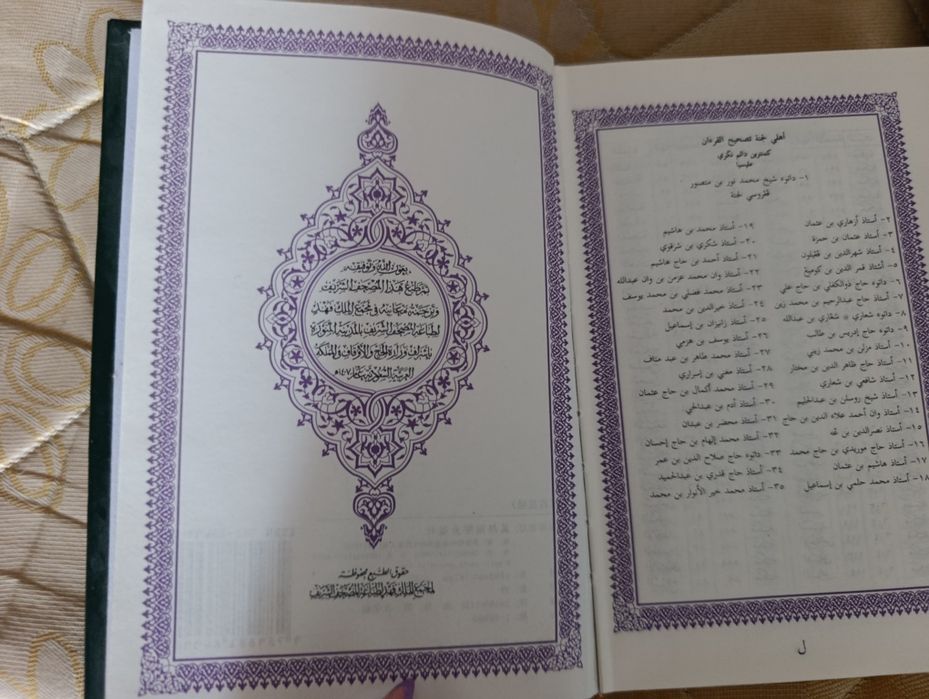 بعون الله وتوفيقه
تم طبع هذا المصحف الشريف
وترجمة معانيه في مجمع الملك فهد
لطباعة المصحف الشريف بالمدينة المنورة
بإشراف وزارة الحج والأوقاف والمملكة
العربية السعودية عام ١٤٠٧ه
حقوق الطبع محفوظة
لمجمع الملك فهد لطباعة المصحف الشريف
أهلي لجنة تصحيح القرءان
كمنترين دالم نكري
مليسيا
١- داتوء شيخ محمد نور بن منصور
ڤڠروسي لجنة
٢- أستاذ أزهاري بن عثمان
٣- أستاذ عثمان بن حمزة
٤- أستاذ شهرالدين بن
٥- أستاذ قمر الدين بن
٦- داتوء حاج ذوالكفلي بن حاج علي
٧- أستاذ حاج عبدالرحيم بن محمد زين
٨- داتوء شعاري @ شعاري بن عبدالله
٩- داتوء حاج إدريس بن طالب
١٠- أستاذ مزلن بن محمد
١١- أستاذ حاج طاهر الدين بن مختار
١٢- أستاذ شافعي بن شعاري
١٣- أستاذ شيخ روسلن بن عبدالحليم
١٤- أستاذ وان أحمد علاء الدين بن حاج
١٥- أستاذ نصرالدين بن
١٦- أستاذ حاج موريدي بن حاج محمد
١٧- أستاذ هاشيم بن عثمان
١٨- أستاذ محمد حلمي بن إسماعيل
١٩- أستاذ محمد بن هاشيم
٢٠- أستاذ شكري بن شرقوي
٢١- أستاذ أحمد بن حاج هاشيم
٢٢- أستاذ وان محمد عزمن بن وان عبدالله
٢٣- أستاذ محمد فضلي بن محمد يوسف
٢٤- أستاذ خيرالدين بن محمد
٢٥- أستاذ زايزان بن إسماعيل
٢٦- أستاذ يوسف بن
٢٧- أستاذ محمد طاهر بن عبد مناف
٢٨- أستاذ بن إسراري
٢٩- أستاذ محمد أكمال بن حاج عثمان
٣٠- أستاذ أدم بن عبدالحي
٣١- أستاذ محضر بن عبدان
٣٢- أستاذ محمد إلهام بن حاج إحسان
٣٣- داتوء حاج صلاح الدين بن عمر
٣٤- أستاذ حاج قدري بن عبدالحميد
٣٥- أستاذ محمد خير الأنوار بن محمد
ل